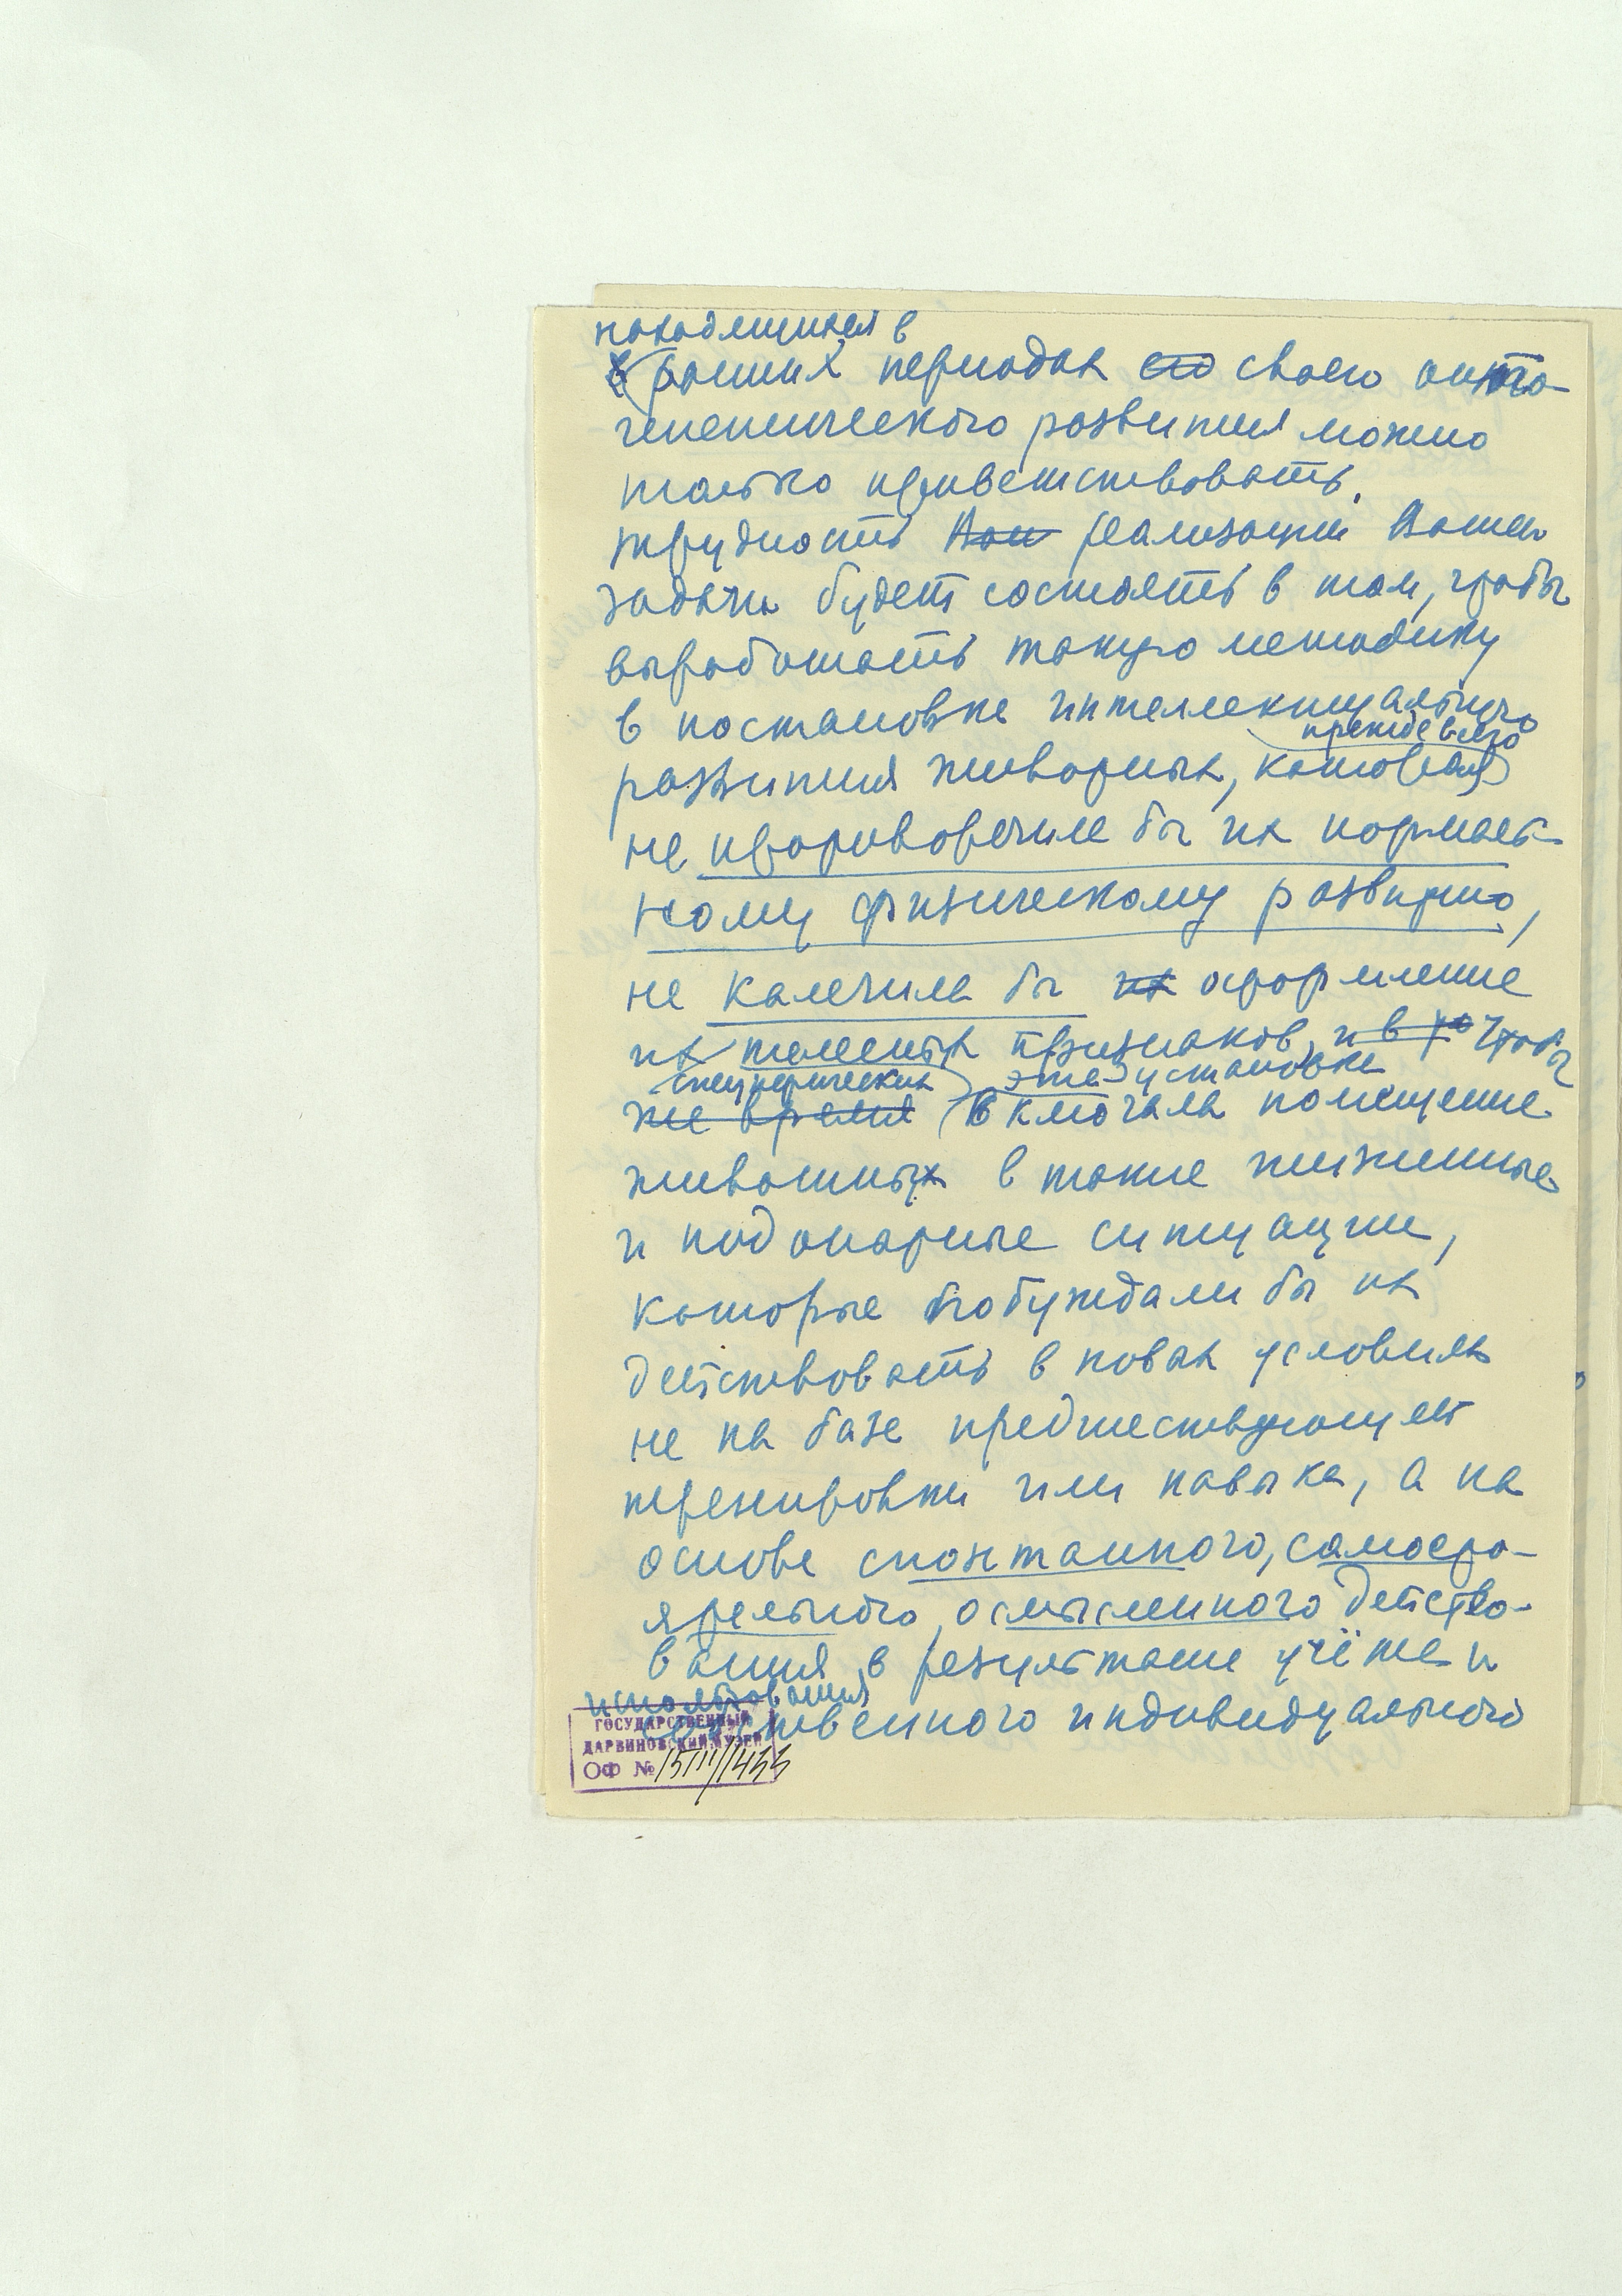 находящихся в
ранних периодах его своего онто-
генетического развития можно
только приветствовать.
Трудность Ваш реализации Вашей
задачи будет состоять в том, чтобы
выработать такую методику
в постановке интеллектуального
прежде всего
развития животных, которая
не противоречила бы их нормаль-
ному физическому развитию,
не калечила бы их оформление
их телесных признаков, и в то чтобы
специфических эта установка
же время включала помещение
животных в такие жизненные
и подопытные ситуации,
которые побуждали бы их
действовать в новых условиях
не на базе предшествующей
тренировки или навыка, а на
основе спонтанного, самосто-
ятельного, осмысленного действо-
вания в результате учёта и
использования
собственного индивидуального
ГОСУДАРСТВЕННЫЙ
ДАРВИНОВСКИЙ МУЗЕЙ
ОФ №